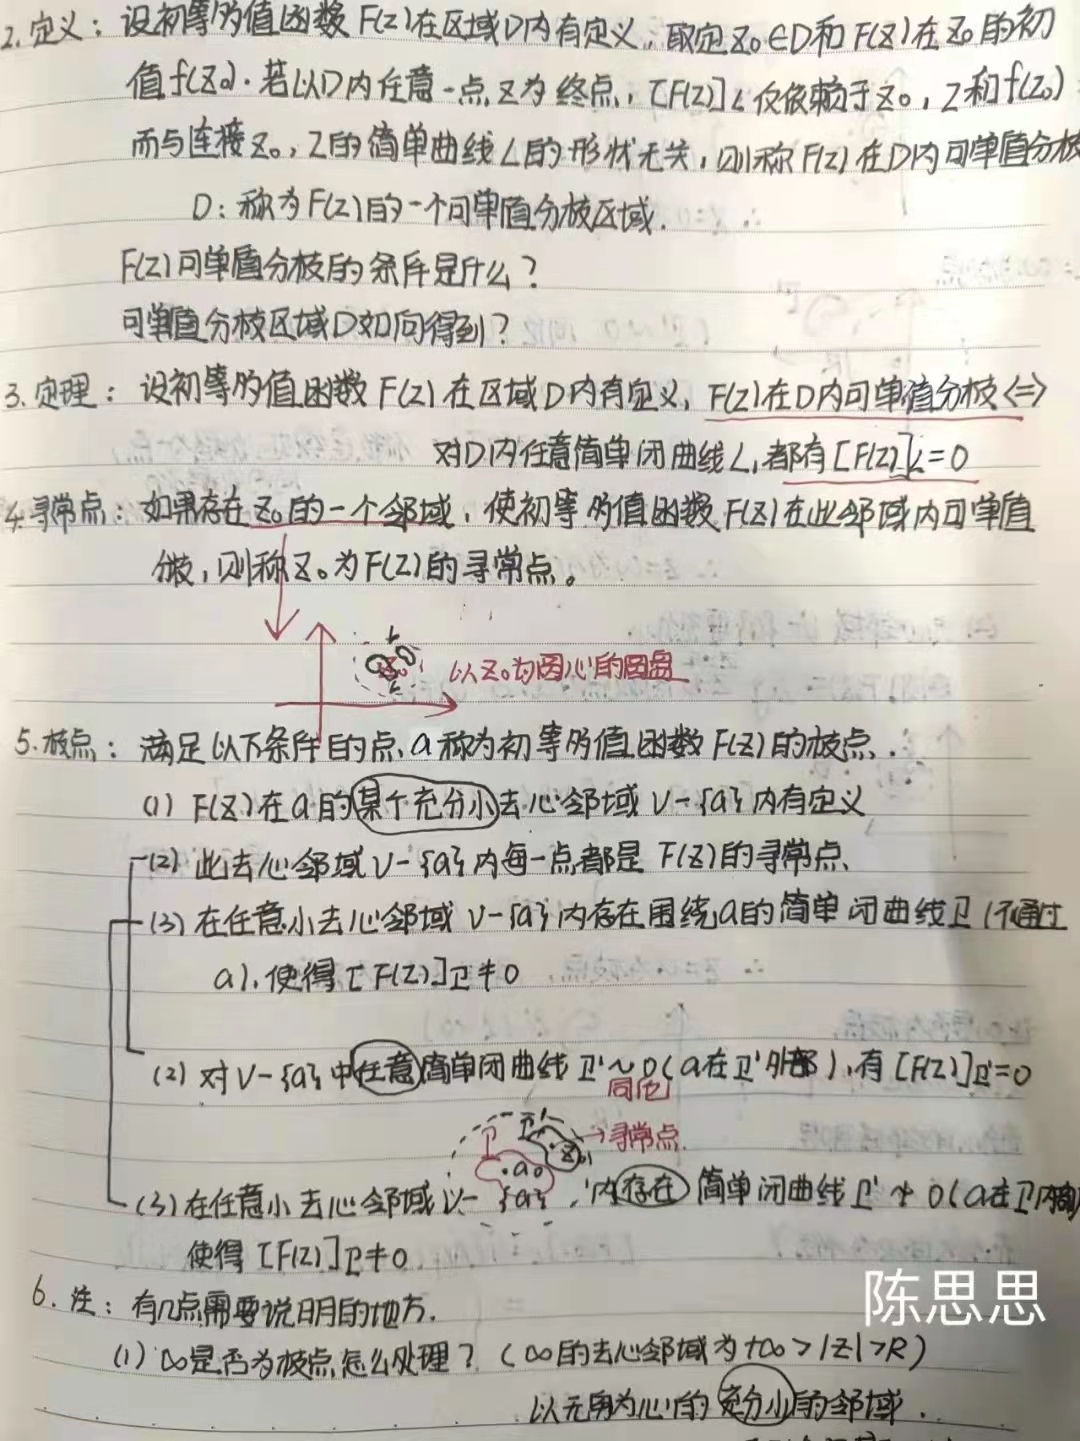 2.定义：设初等多值函数F(Z)在区域D内有定义，取定Z₀∈D和F(Z)在Z₀的初
值f(Z₀).若以D内任意一点Z为终点，[F(Z)]L仅依赖于Z₀，Z和f(Z₀)
而与连接Z₀，Z的简单曲线L的形状无关，则称F(Z)在D内可单值分枝
D：称为F(Z)的一个可单值分枝区域.
F(Z)可单值分枝的条件是什么？
可单值分枝区域D如何得到？
3.定理：设初等多值函数F(Z)在区域D内有定义，F(Z)在D内可单值分枝<=>
对D内任意简单闭曲线L，都有[F(Z)]L=0
4.寻常点：如果存在Z₀的一个邻域，使初等多值函数F(Z)在此邻域内可单值
分枝，则称Z₀为F(Z)的寻常点。
以Z₀为圆心的圆盘
5.枝点：满足以下条件的点a称为初等多值函数F(Z)的枝点.
(1) F(Z)在a的某个充分小去心邻域V-{a}内有定义
(2) 此去心邻域V-{a}内每一点都是F(Z)的寻常点
(3) 在任意小去心邻域V-{a}内存在围绕a的简单闭曲线Γ(不通过
a)，使得[F(Z)]Γ≠0
(2) 对V-{a}中任意简单闭曲线Γ'~0(a在Γ'外部)，有[F(Z)]Γ'=0
同伦
Γ Γ' →寻常点
.a Z₀
(3) 在任意小去心邻域V-{a}内存在简单闭曲线Γ ≁ 0(a在Γ内部)
使得[F(Z)]Γ≠0
6.注：有几点需要说明的地方.
(1) ∞是否为枝点怎么处理？(∞的去心邻域为+∞>|Z|>R)
以无穷为心的充分小的邻域.
陈思思